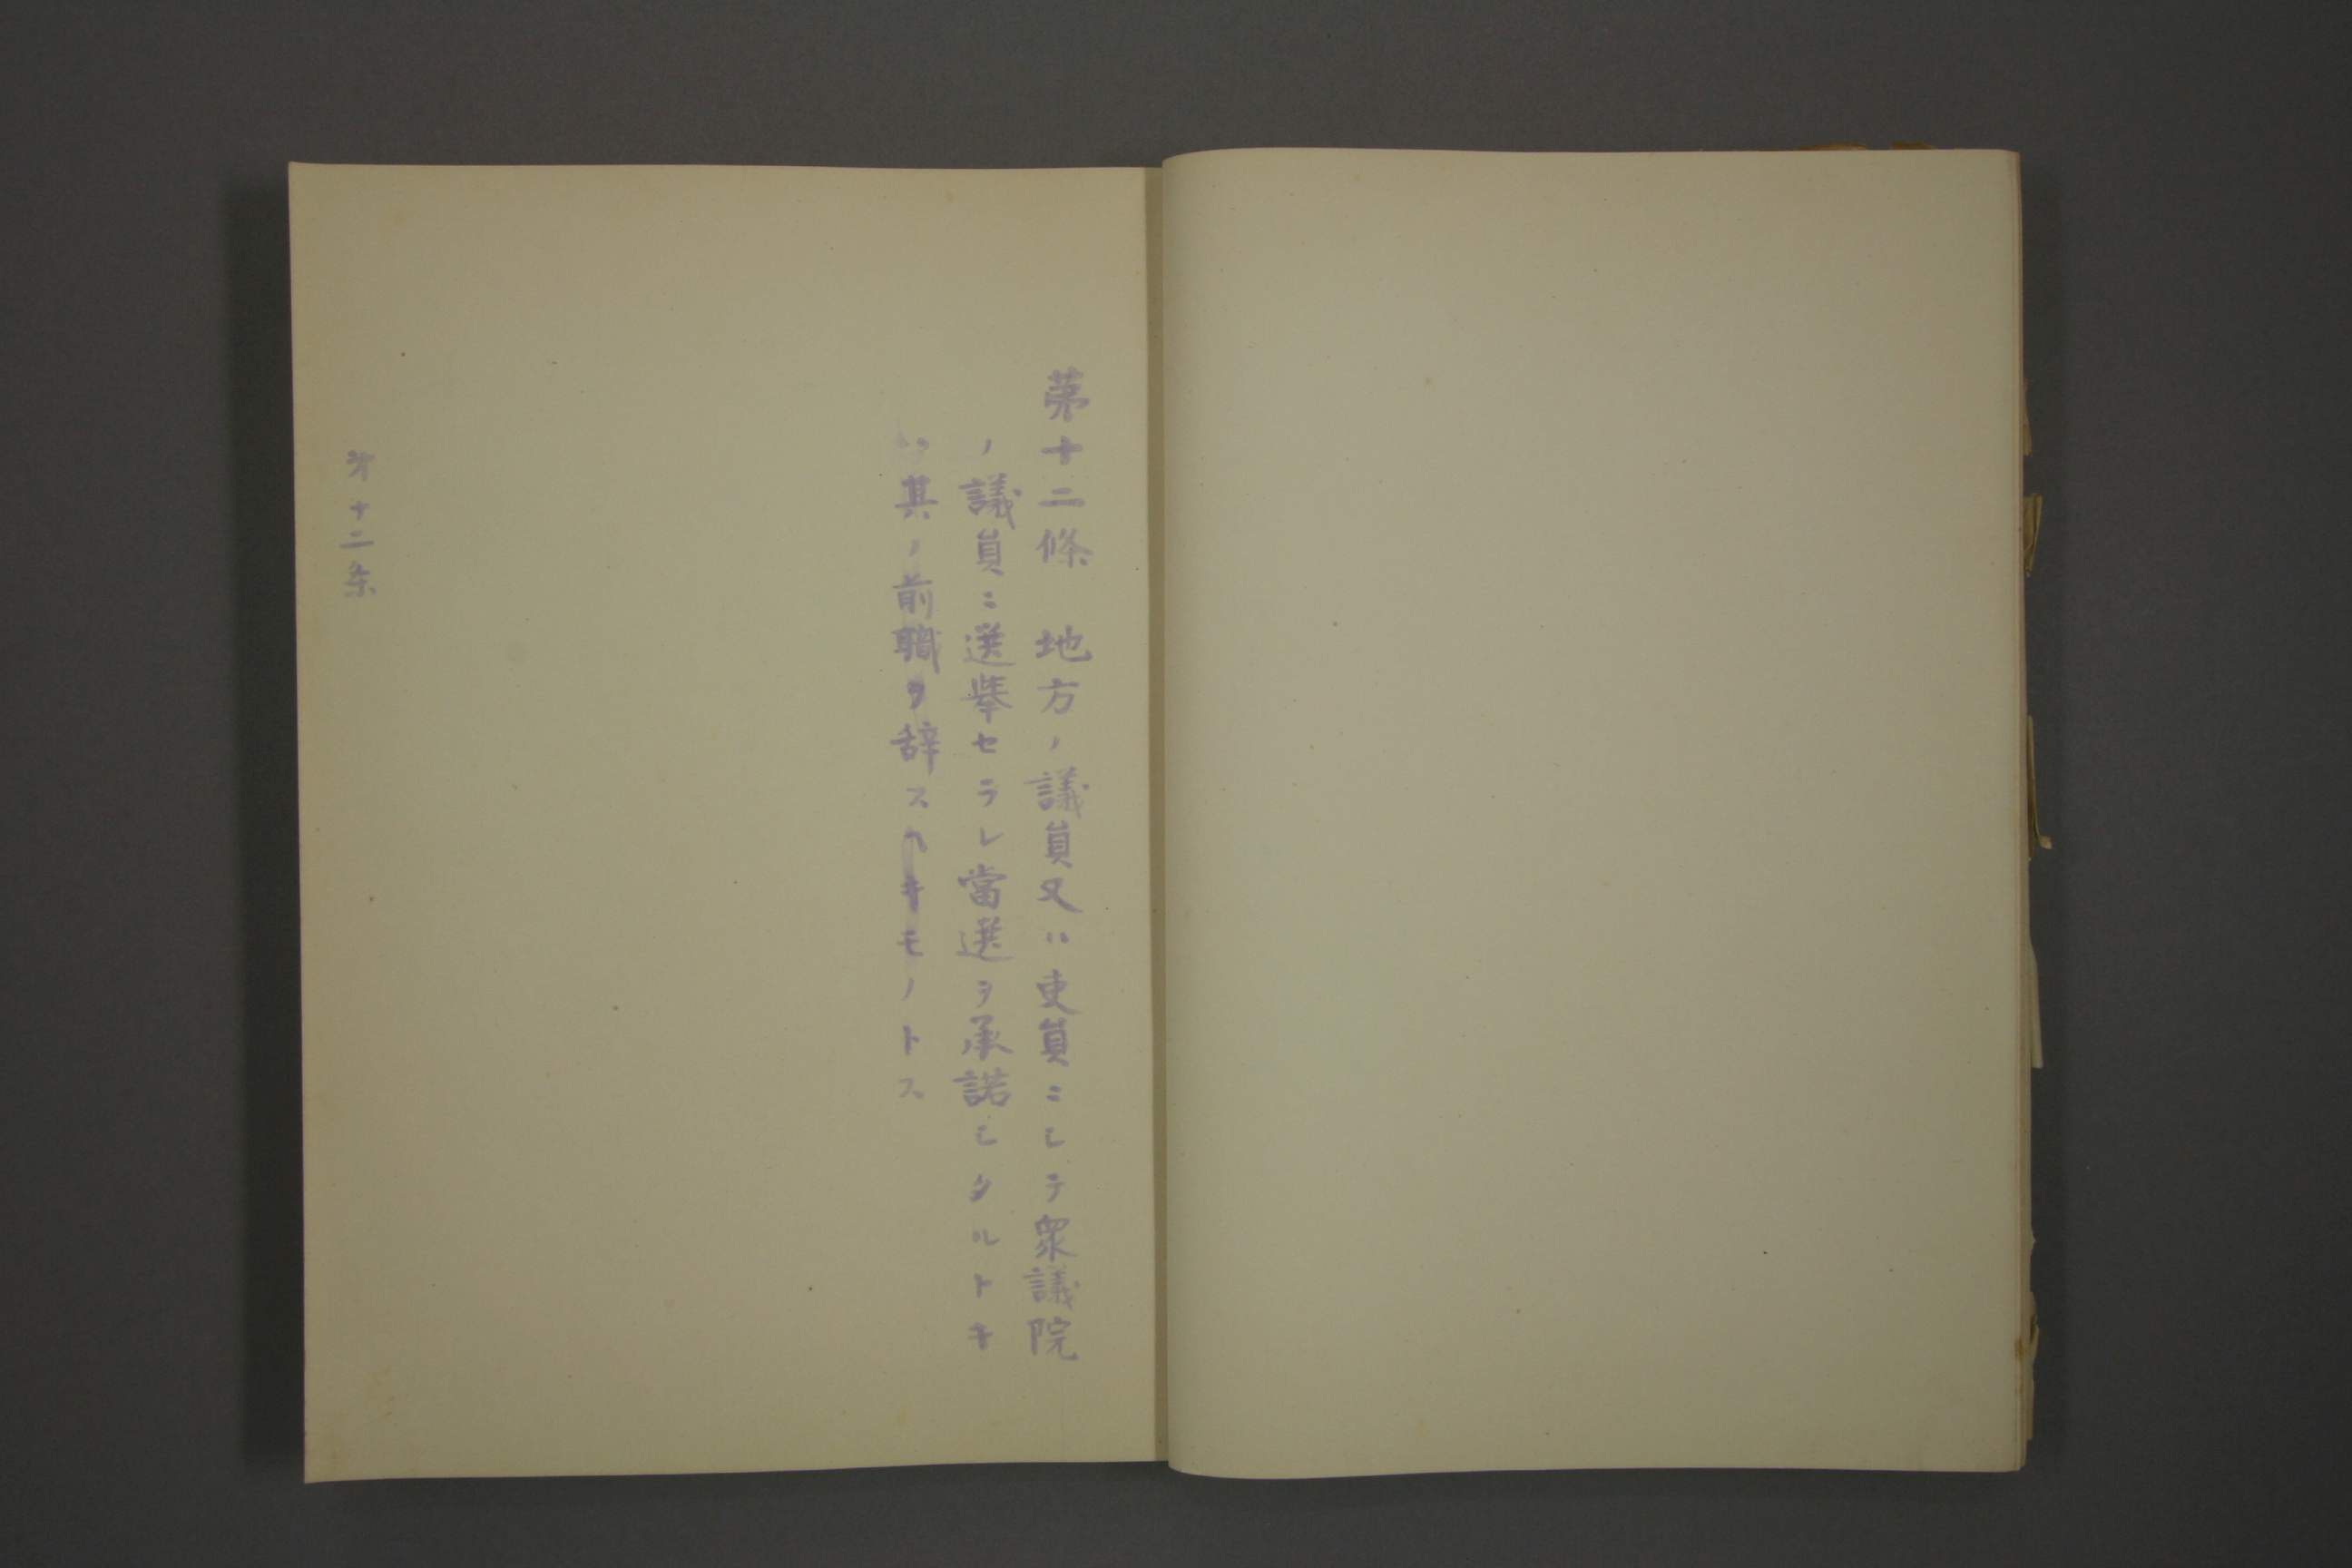 第十二條　地方ノ議員又ハ吏員ニシテ衆議院
ノ議員ニ選挙セラレ當選ヲ承諾シタルトキ
ハ其ノ前職ヲ辞スヘキモノトス
第十二条